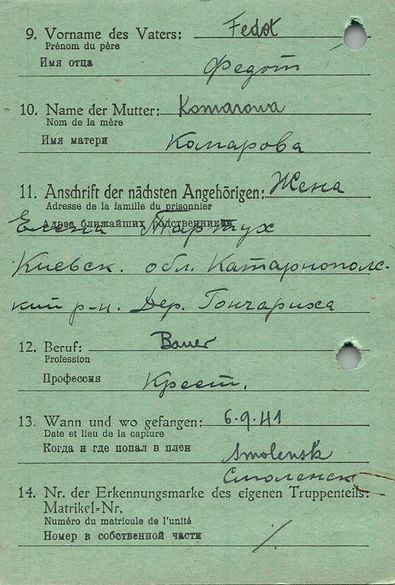 9. Vorname des Vaters: Fedot
Prénom du père
Имя отца Федот
10. Name der Mutter: Komarowa
Nom de la mère
Имя матери Камарова
11. Anschrift der nächsten Angehörigen: Жена
Adresse de la famille du prisonnier
Адрес ближайших родственников
Елена Тартух
Киевск. обл. Катарнополс-
кий р-н. Дер. Гончариха
12. Beruf: Bauer
Profession
Профессия Крест.
13. Wann und wo gefangen: 6.9.41
Date et lieu de la capture
Когда и где попал в плен Smolensk
Смоленск
14. Nr. der Erkennungsmarke des eigenen Truppenteils:
Matrikel-Nr.
Numéro du matricule de l'unité
Номер в собственной части %